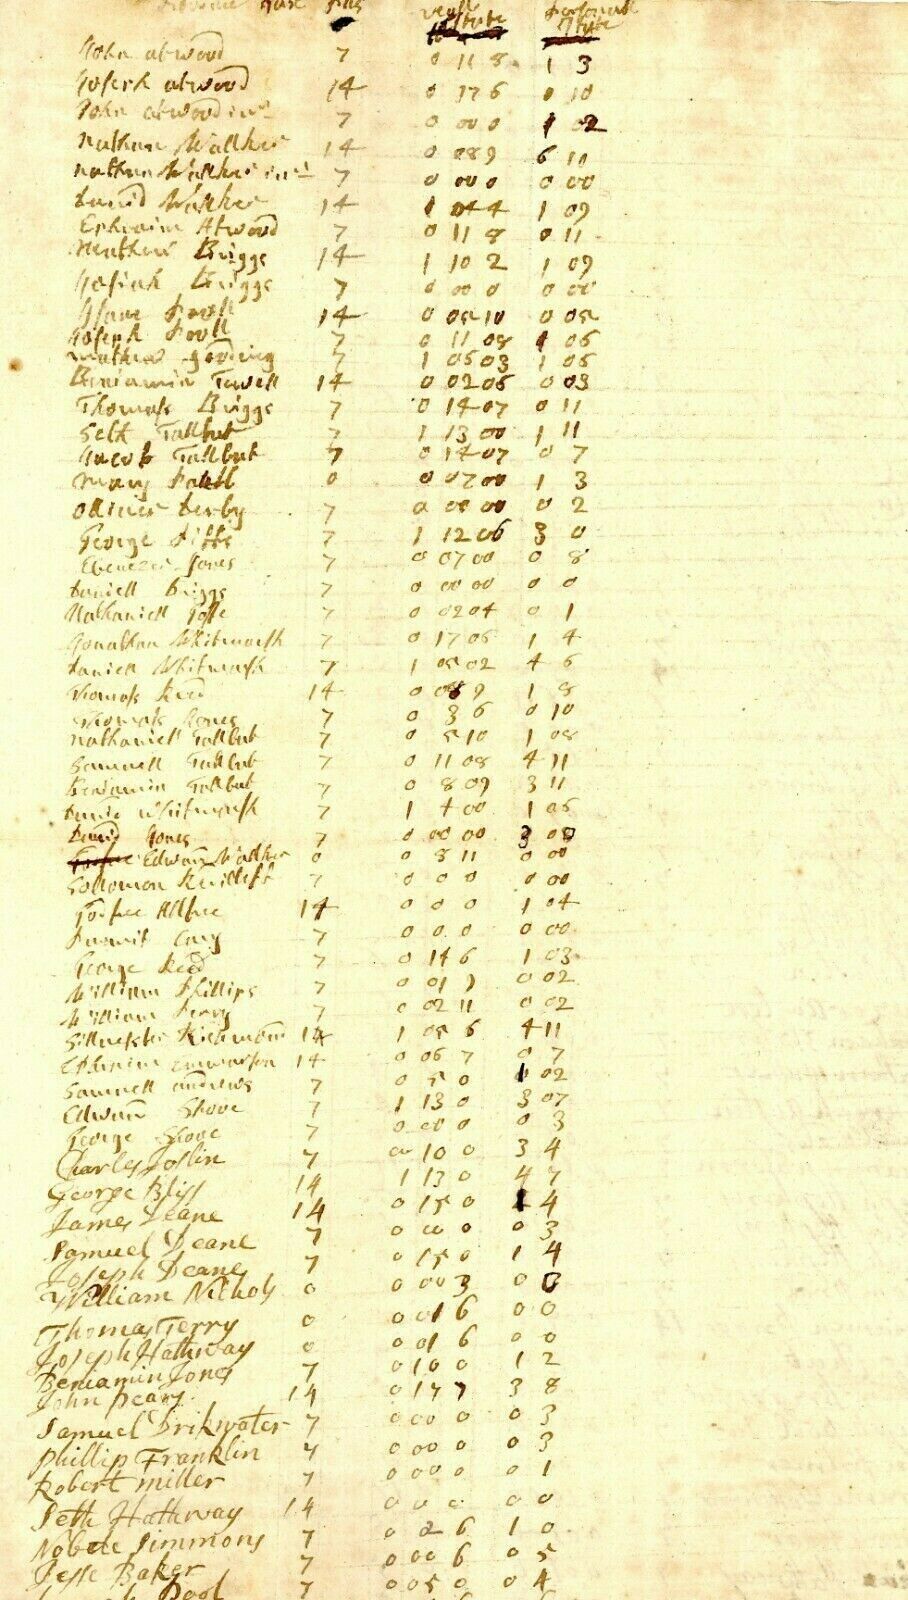 Province Tax Pols Reall Estate Personall Estate
John atwood 7 0 11 8 1 3
Joseph atwood 14 0 17 6 0 10
John atwood iunr 7 0 00 0 1 02
Nathan Walker 14 0 08 9 6 10
Nathan Walker iunr 7 0 00 0 0 00
David Walker 14 1 04 4 1 09
Ephraim Atwood 7 0 11 8 0 11
Mathew Briggs 14 1 10 2 1 09
Josiah Briggs 7 0 00 0 0 00
14 0 05 10 0 05
Joseph 7 0 11 08 1 06
Mathew Goding 7 1 05 03 1 05
Beniamin 14 0 02 05 0 03
Thomass Briggs 7 0 14 07 0 11
Seth Tallbut 7 1 13 00 1 11
Jacob Tallbut 7 0 14 07 0 7
Mary 0 0 07 00 1 3
Olliver Derby 7 0 00 00 0 2
George Pitts 7 1 12 06 3 0
Ebenezer Jones 7 0 07 00 0 8
Daniell Briggs 7 0 00 00 0 0
Nathaniell 7 0 02 04 0 1
Jonathan Whitmarsh 7 0 17 05 1 4
Daniell Whitmarsh 7 1 05 02 4 6
Thomass Reed 14 0 08 9 1 8
Thomass Jones 7 0 3 6 0 10
Nathaniell Tallbut 7 0 5 10 1 08
Samuell Tallbut 7 0 11 08 4 11
Beniamin Tallbut 7 0 8 09 3 11
David Whitmarsh 7 1 4 00 1 05
David Jones 7 0 00 00 3 00
Edward Walker 0 0 8 11 0 00
Sollomon 7 0 0 0 0 00
14 0 0 0 1 04
7 0 0 0 0 00
George Reed 7 0 14 6 1 03
William Phillips 7 0 01 0 02
William Perry 7 0 02 11 0 02
Sillvester Richmond 14 1 05 6 4 11
Ephraim 14 0 06 7 0 7
Samuell andrews 7 0 5 0 1 02
Edward Shove 7 1 13 0 3 07
George Shove 7 0 00 0 0 3
Charles Joslin 7 00 10 0 3 4
George Bliss 14 1 13 0 4 7
James Deane 14 0 15 0 1 4
Samuel Deane 7 0 00 0 0 3
Joseph Deane 7 0 15 0 1 4
William Nichols 0 0 00 3 0 0
Thomas Terry 0 0 01 6 0 0
Joseph Hathway 0 0 01 6 0 0
Beniamin Jones 7 0 10 0 1 2
John Peary 14 0 17 7 3 8
Samuel Drikwater 7 0 00 0 0 3
Phillip Franklin 7 0 00 0 0 3
Robert Miller 7 0 00 0 0 1
Seth Hathway 14 0 0 0 0 0
Simmons 7 0 2 6 1 0
Jesse Baker 7 0 00 6 0 5
Pool 7 0 05 0 0 4